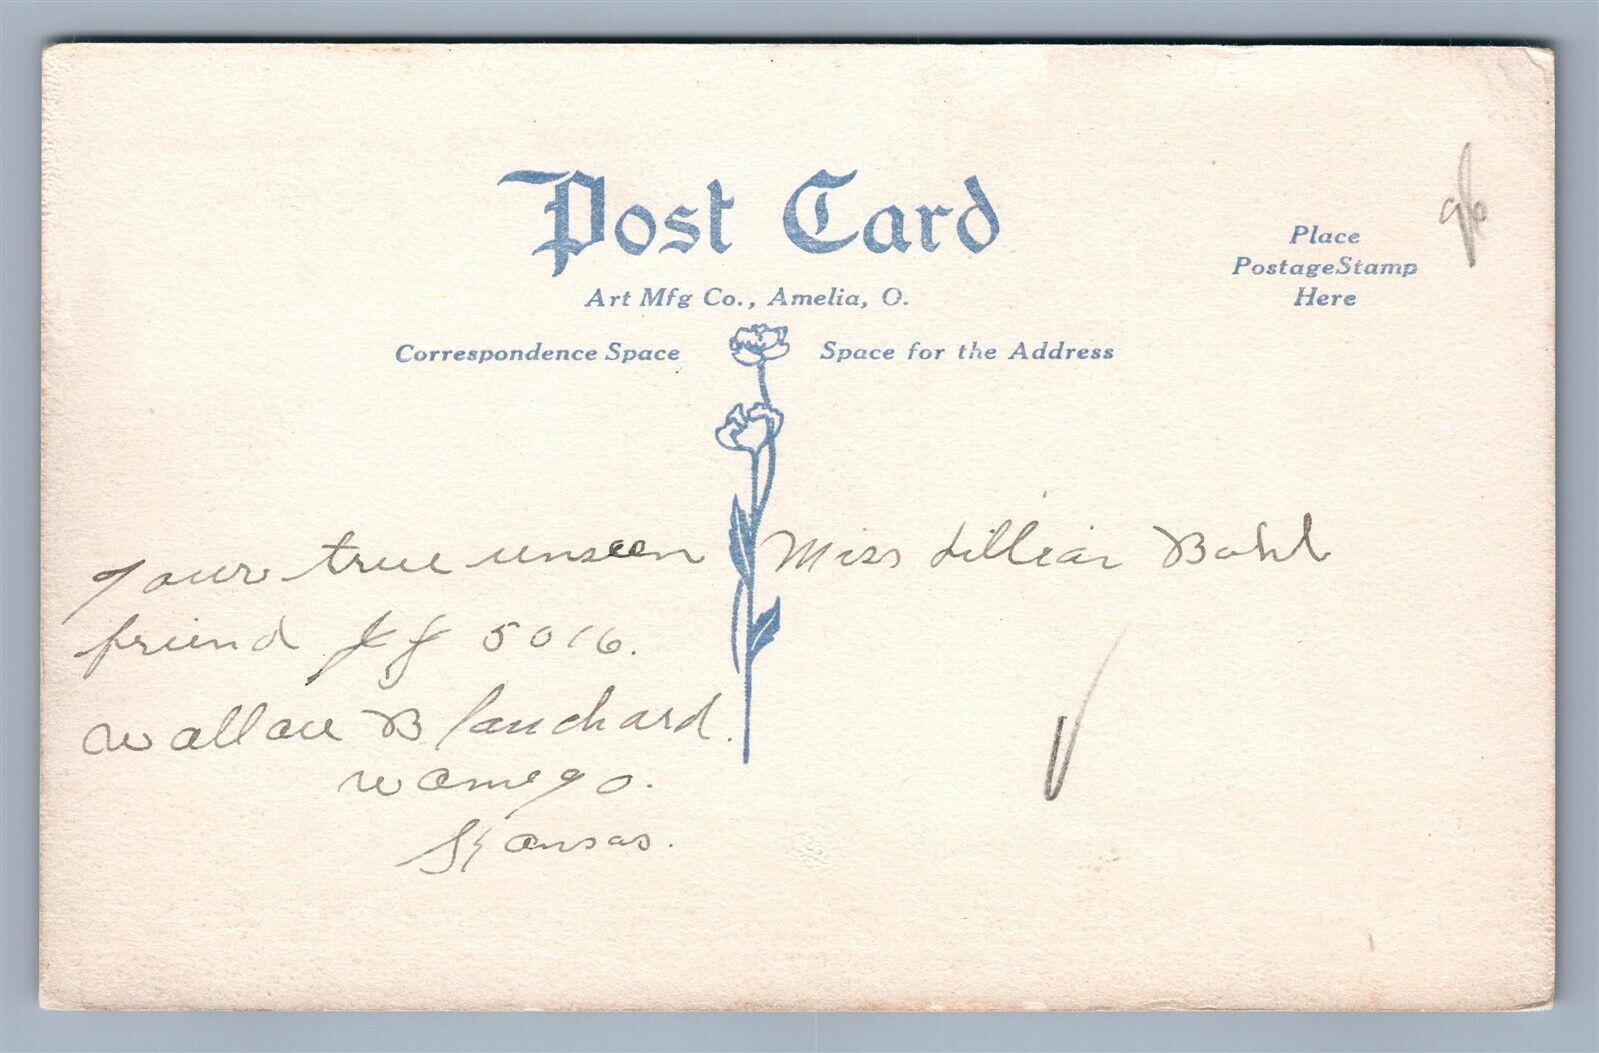 Post Card
Art Mfg Co., Amelia, O.
Place
Postage Stamp
Here
Correspondence Space
Space for the Address
your true unseen
friend J J 5016.
Wallace Blanchard.
Wamego.
Kansas.
Miss Lillian Bohl